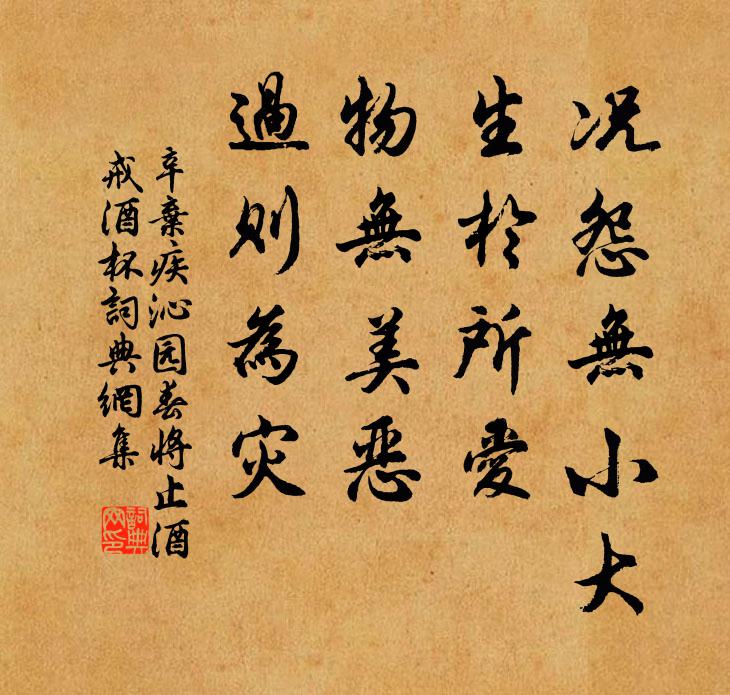 况怨無小大
生於所愛
物無美惡
過則為灾
辛棄疾沁园春将止酒
戒酒杯詞典網集
詞典网印